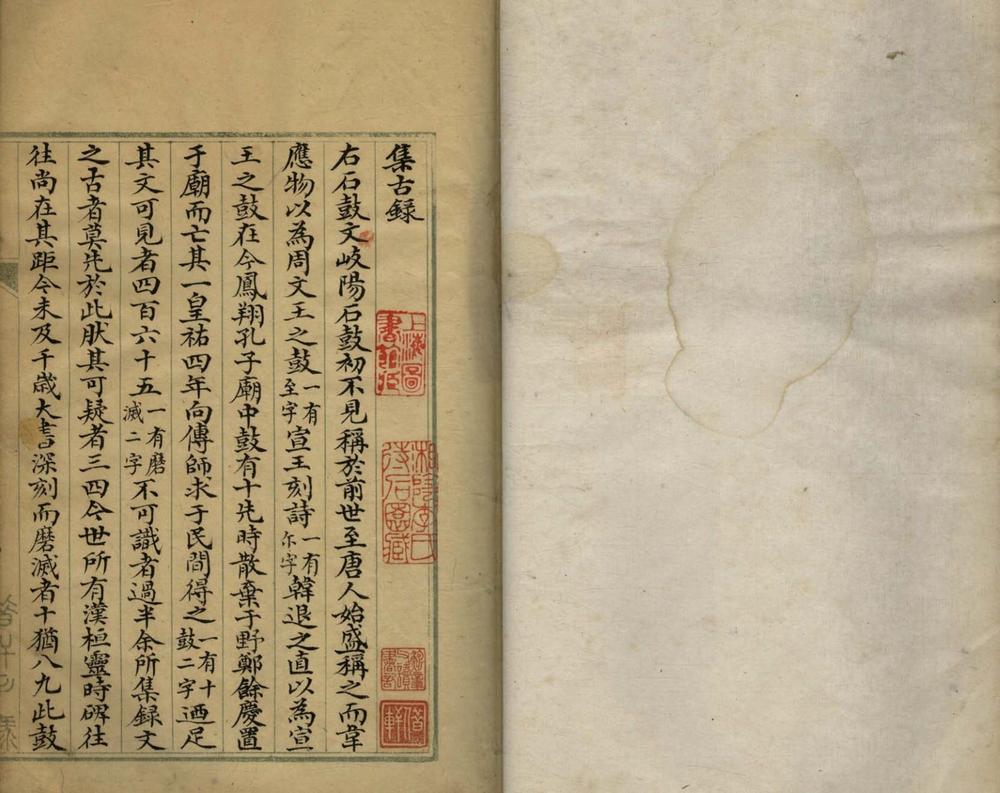 集古録
右石鼓文岐陽石鼓初不見稱於前世至唐人始盛稱之而韋
應物以為周文王之鼓一有至字宣王刻詩一有尓字韓退之直以為宣
王之鼓在今鳳翔孔子廟中鼓有十先時散棄于野鄭餘慶置
于廟而亡其一皇祐四年向傳師求于民間得之一有十鼓二字迺足
其文可見者四百六十五一有磨滅二字不可識者過半余所集録文
之古者莫先於此肰其可疑者三四今世所有漢桓靈時碑往
往尚在其距今未及千歲大書深刻而磨滅者十猶八九此鼓
上海圖書館藏
湘陰李氏
待石園藏